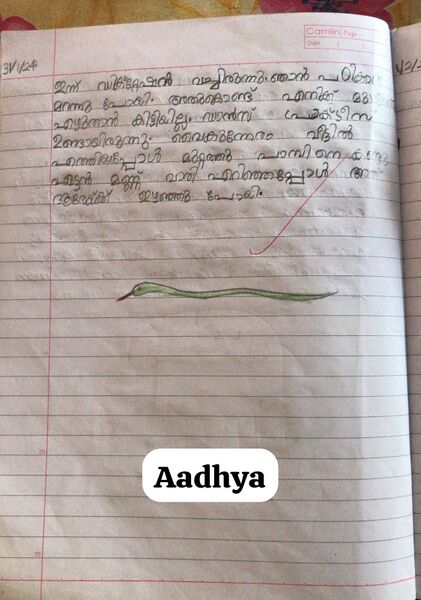 Camlin Page
Date
31/1/24
1/2/
ഇന്ന് ഡിക്റ്റേഷൻ വച്ചിരുന്നു. ഞാൻ പഠിക്കാ
മറന്നു പോയി. അതുകൊണ്ട് എനിക്ക്
എഴുതാൻ കിട്ടിയില്ല. ഡാൻസ് പ്രാക്ടീസ്
ഉണ്ടായിരുന്നു. വൈകുന്നേരം വീട്ടിൽ
എത്തിയപ്പോൾ മുറ്റത്ത് പാമ്പിനെ കണ്ടു
ഏട്ടൻ മണ്ണ് വാരി എറിഞ്ഞപ്പോൾ അത്
ഇഴഞ്ഞു പോയി.
12
16
20
25
Aadhya